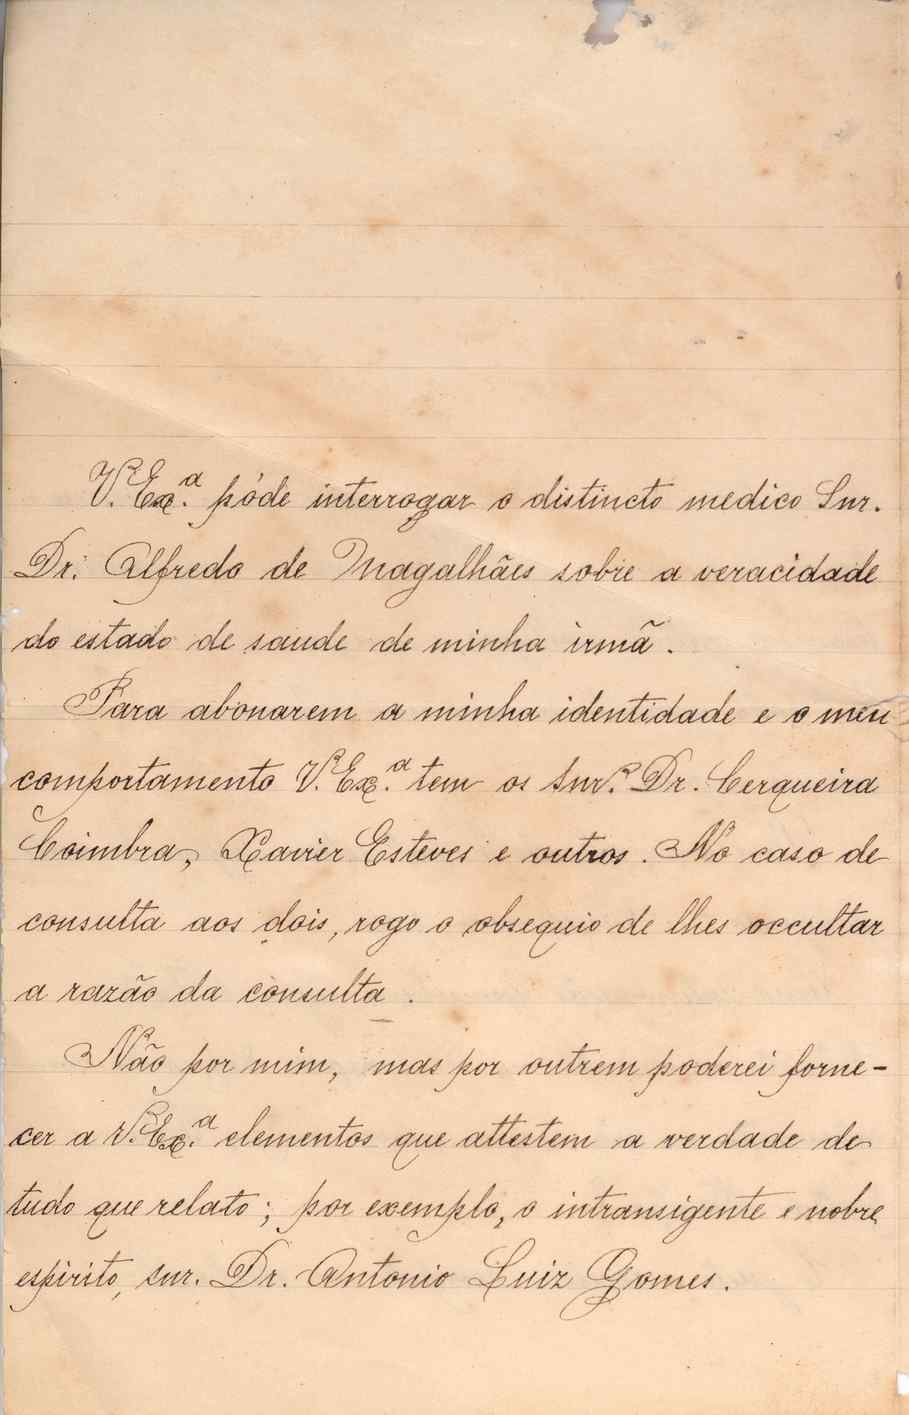 V. Ex.ª póde interrogar o distincto medico Snr.
Dr. Alfredo de Magalhães sobre a veracidade
do estado de saude de minha irmã.
Para abonarem a minha identidade e o meu
comportamento V. Ex.ª tem os Snr.s Dr. Cerqueira
Coimbra, Xavier Esteves e outros. No caso de
consulta aos dois, rogo o obsequio de lhes occultar
a razão da consulta.
Não por mim, mas por outrem poderei forne-
cer a V. Ex.ª elementos que attestem a verdade de
tudo que relato; por exemplo, o intransigente e nobre
espirito, snr. Dr. Antonio Luiz Gomes.